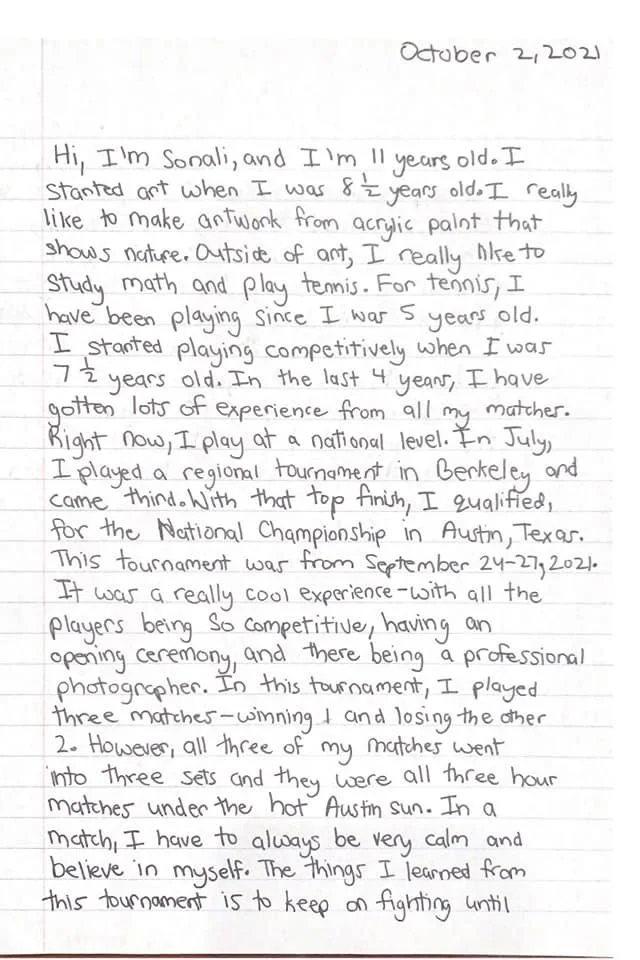 October 2, 2021
Hi, I'm Sonali, and I'm 11 years old. I
started art when I was 8 ½ years old. I really
like to make artwork from acrylic paint that
shows nature. Outside of art, I really like to
study math and play tennis. For tennis, I
have been playing since I was 5 years old.
I started playing competitively when I was
7 ½ years old. In the last 4 years, I have
gotten lots of experience from all my matches.
Right now, I play at a national level. In July,
I played a regional tournament in Berkeley and
came third. With that top finish, I qualified,
for the National Championship in Austin, Texas.
This tournament was from September 24-27, 2021.
It was a really cool experience-with all the
players being so competitive, having an
opening ceremony, and there being a professional
photographer. In this tournament, I played
three matches-winning 1 and losing the other
2. However, all three of my matches went
into three sets and they were all three hour
matches under the hot Austin sun. In a
match, I have to always be very calm and
believe in myself. The things I learned from
this tournament is to keep on fighting until